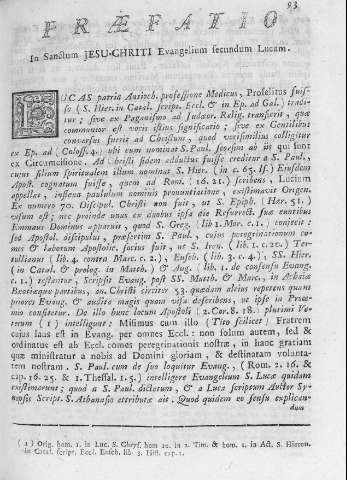 93
PRÆFATIO
In Sanctum JESU-CHRITI Evangelium secundum Lucam.
LUCAS patria Antioch. professione Medicus, Proselitus fuis-
se (S. Hier. in Catal. script. Eccl. & in Ep. ad Gal.) tradi-
tur; sive ex Paganismo ad Judæor. Relig. transerit, quæ
communior est vocis istius significatio; sive ex Gentilibus
conversus fuerit ad Christum, quod verisimilius colligitur
ex Ep. ad Coloss. 4. ubi eum nominat S. Paul. seorsim ab iis qui sunt
ex Circumcisione. Ad Christi fidem adductus fuisse creditur a S. Paul,
cujus filium spiritualem illum nominat S. Hier. (in c. 65. Is.) Ejusdem
Apost. cognatum fuisse, quem ad Rom. (16. 21.) scribens, Lucium
appellat, inflexa paululum nominis pronuntiatione, existimavit Origen.
Ex numero 70. Discipul. Christi non fuit, ut S. Epiph. (Hær. 51.)
visum est; nec proinde unus ex duobus ipsa die Resurrect. suæ euntibus
Emmaus Dominus apparuit, quod S. Greg. (lib. 1. Mor. c. 1.) conjecit:
sed Apostol. discipulus, præsertim S. Paul, cujus peregrinationum co-
mes & laborum Apostolic. socius fuit, ut S. Iren. (lib. 1. c. 20.) Ter-
tullianus (lib. 4. contra Marc. c. 2.), Euseb. (lib. 3. c. 4.), SS. Hier.
(in Catal. & prolog. in Matth.) & Aug. (lib. 1. de consensu Evang.
c. 1.) testantur, Scripsit Evang. post SS. Matth. & Marc., in Achaiæ
Bœotiæque partibus, an. Christi circiter 53. quædam altius repetens quam
priores Evang. & audita magis quam visa describens, ut ipse in Proœ-
mio confitetur. De illo hunc locum Apostoli (2. Cor. 8. 18.) plurimi Ve-
terum (1) intelligunt: Misimus cum illo (Tito scilicet) Fratrem
cujus laus est in Evang. per omnes Eccl: non solum autem, sed &
ordinatus est ab Eccl. comes peregrinationis nostræ, in hanc gratiam
quæ ministratur a nobis ad Domini gloriam, & destinatam volunta-
tem nostram. S. Paul. cum de suo loquitur Evang., (Rom. 2. 16. &
cap. 16. 25. & 1. Thessal. 1. 5.) intelligere Evangelium S. Lucæ quidam
existimarunt; quod a S. Paul. dictatum, & a Luca scriptum Auctor Sy-
nopsis Script. S. Athanasio attributæ ait. Quod quidem eo sensu explican-
dum
(1) Orig. hom. 1. in Luc. S. Chrys. hom 10. in 2. Tim. & hom. 1. in Act. S. Hieron.
in Catal. script. Eccl. Euseb. lib. 3. Hist. cap. 1.